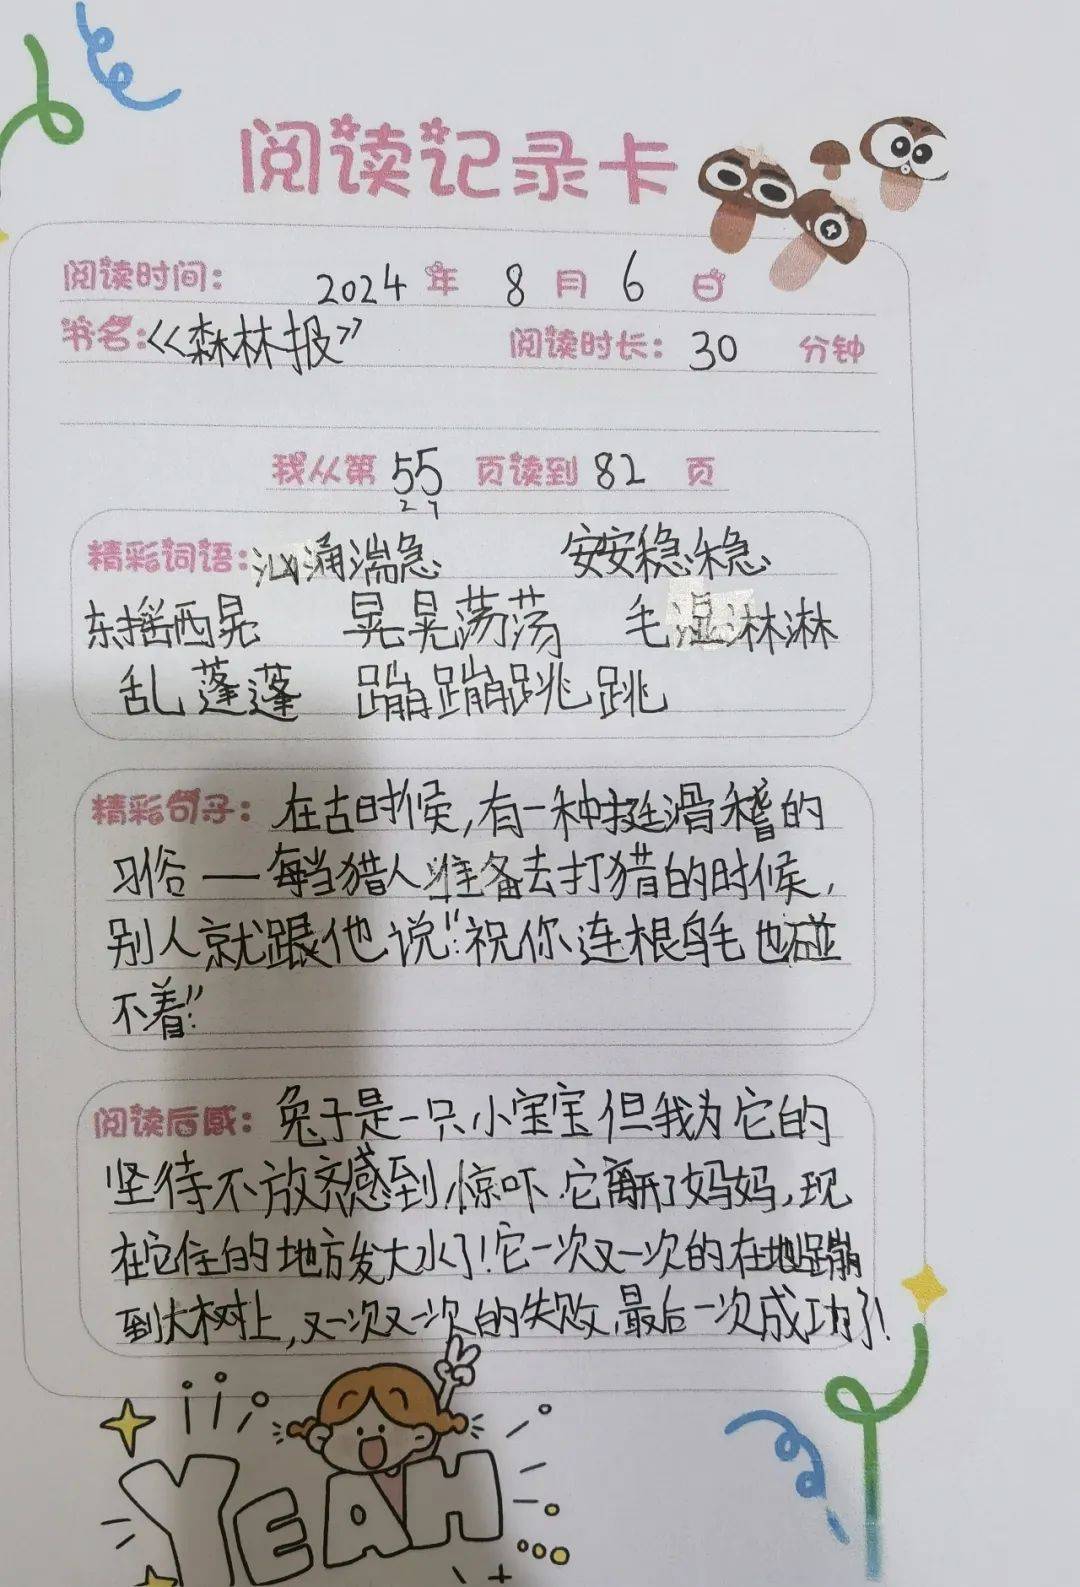 阅读记录卡
阅读时间: 2024 年 8 月 6 日
书名:《森林报》 阅读时长: 30 分钟
我从第 55 页读到 82 页
27
精彩词语: 汹涌湍急 安安稳稳
东摇西晃 晃晃荡荡 毛湿淋淋
乱蓬蓬 蹦蹦跳跳
精彩句子: 在古时候,有一种挺滑稽的
习俗——每当猎人准备去打猎的时候,
别人就跟他说:“祝你连根鸟毛也碰
不着!”
阅读后感: 兔子是一只小宝宝但我为它的
坚待不放弃感到惊吓.它离开了妈妈,现
在它住的地方发大水了!它一次又一次的在地蹦
到大树上,又一次又一次的失败,最后一次成功了!
YEAH